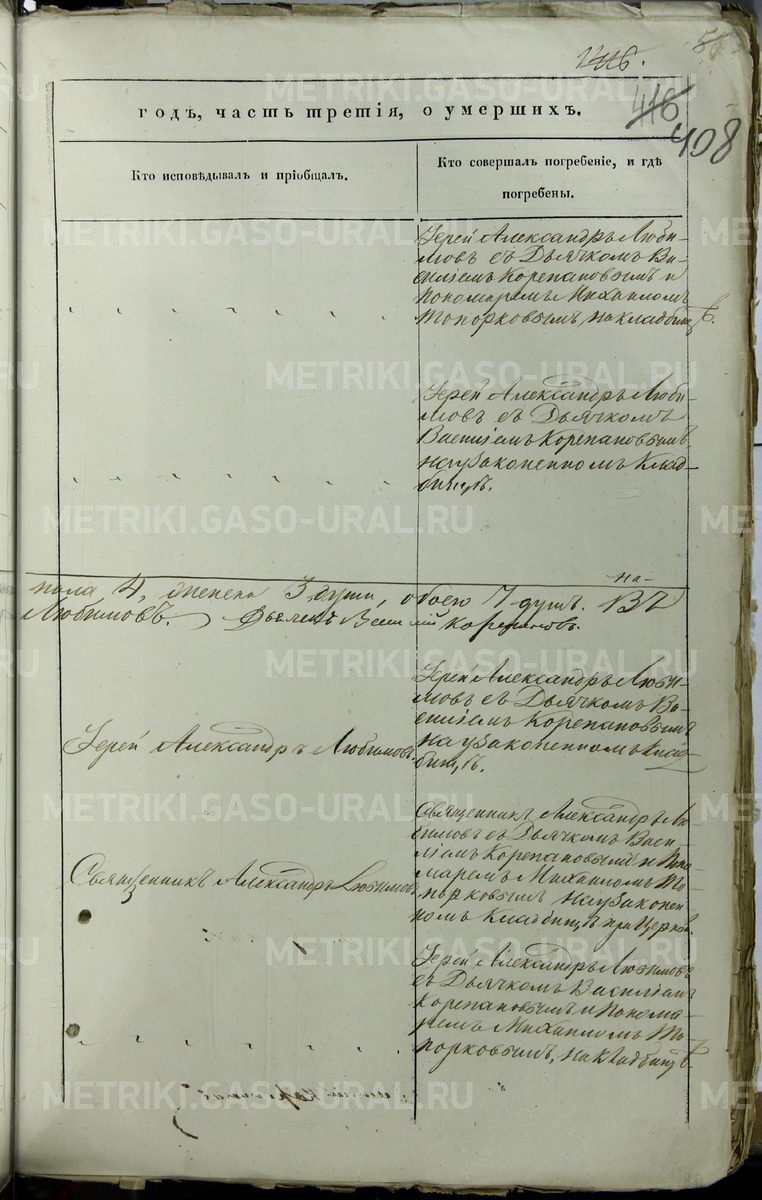 416.
416
408
годъ, часть третія, о умершихъ.
Кто исповѣдывалъ и пріобщалъ.
Кто совершалъ погребеніе, и гдѣ
погребены.
Іерей Александръ Люби-
мовъ съ Дьячкомъ Ва-
силіемъ Корепановымъ и
Пономаремъ Михаиломъ
Топорковымъ, на кладбищѣ.
Іерей Александръ Люби-
мовъ съ Дьячкомъ
Василіемъ Корепановымъ
на узаконенномъ Клад-
бищѣ.
пола 4, женска 3 души, обоего 7 душъ.
Любимовъ. Дьячекъ Василій Корепановъ.
Іерей Александръ Люби-
мовъ съ Дьячкомъ Ва-
силіемъ Корепановымъ
на узаконенномъ Клад-
бищѣ.
Іерей Александръ Любимовъ.
Священникъ Александръ Лю-
бимовъ съ Дьячкомъ Васи-
ліемъ Корепановымъ и Поно-
маремъ Михаиломъ То-
порковымъ на узаконен-
номъ Кладбищѣ при Церкви.
Священникъ Александръ Любимовъ
Іерей Александръ Любимовъ
съ Дьячкомъ Василіемъ
Корепановымъ и Понома-
ремъ Михаиломъ То-
порковымъ, на Кладбищѣ.
METRIKI.GASO-URAL.RU